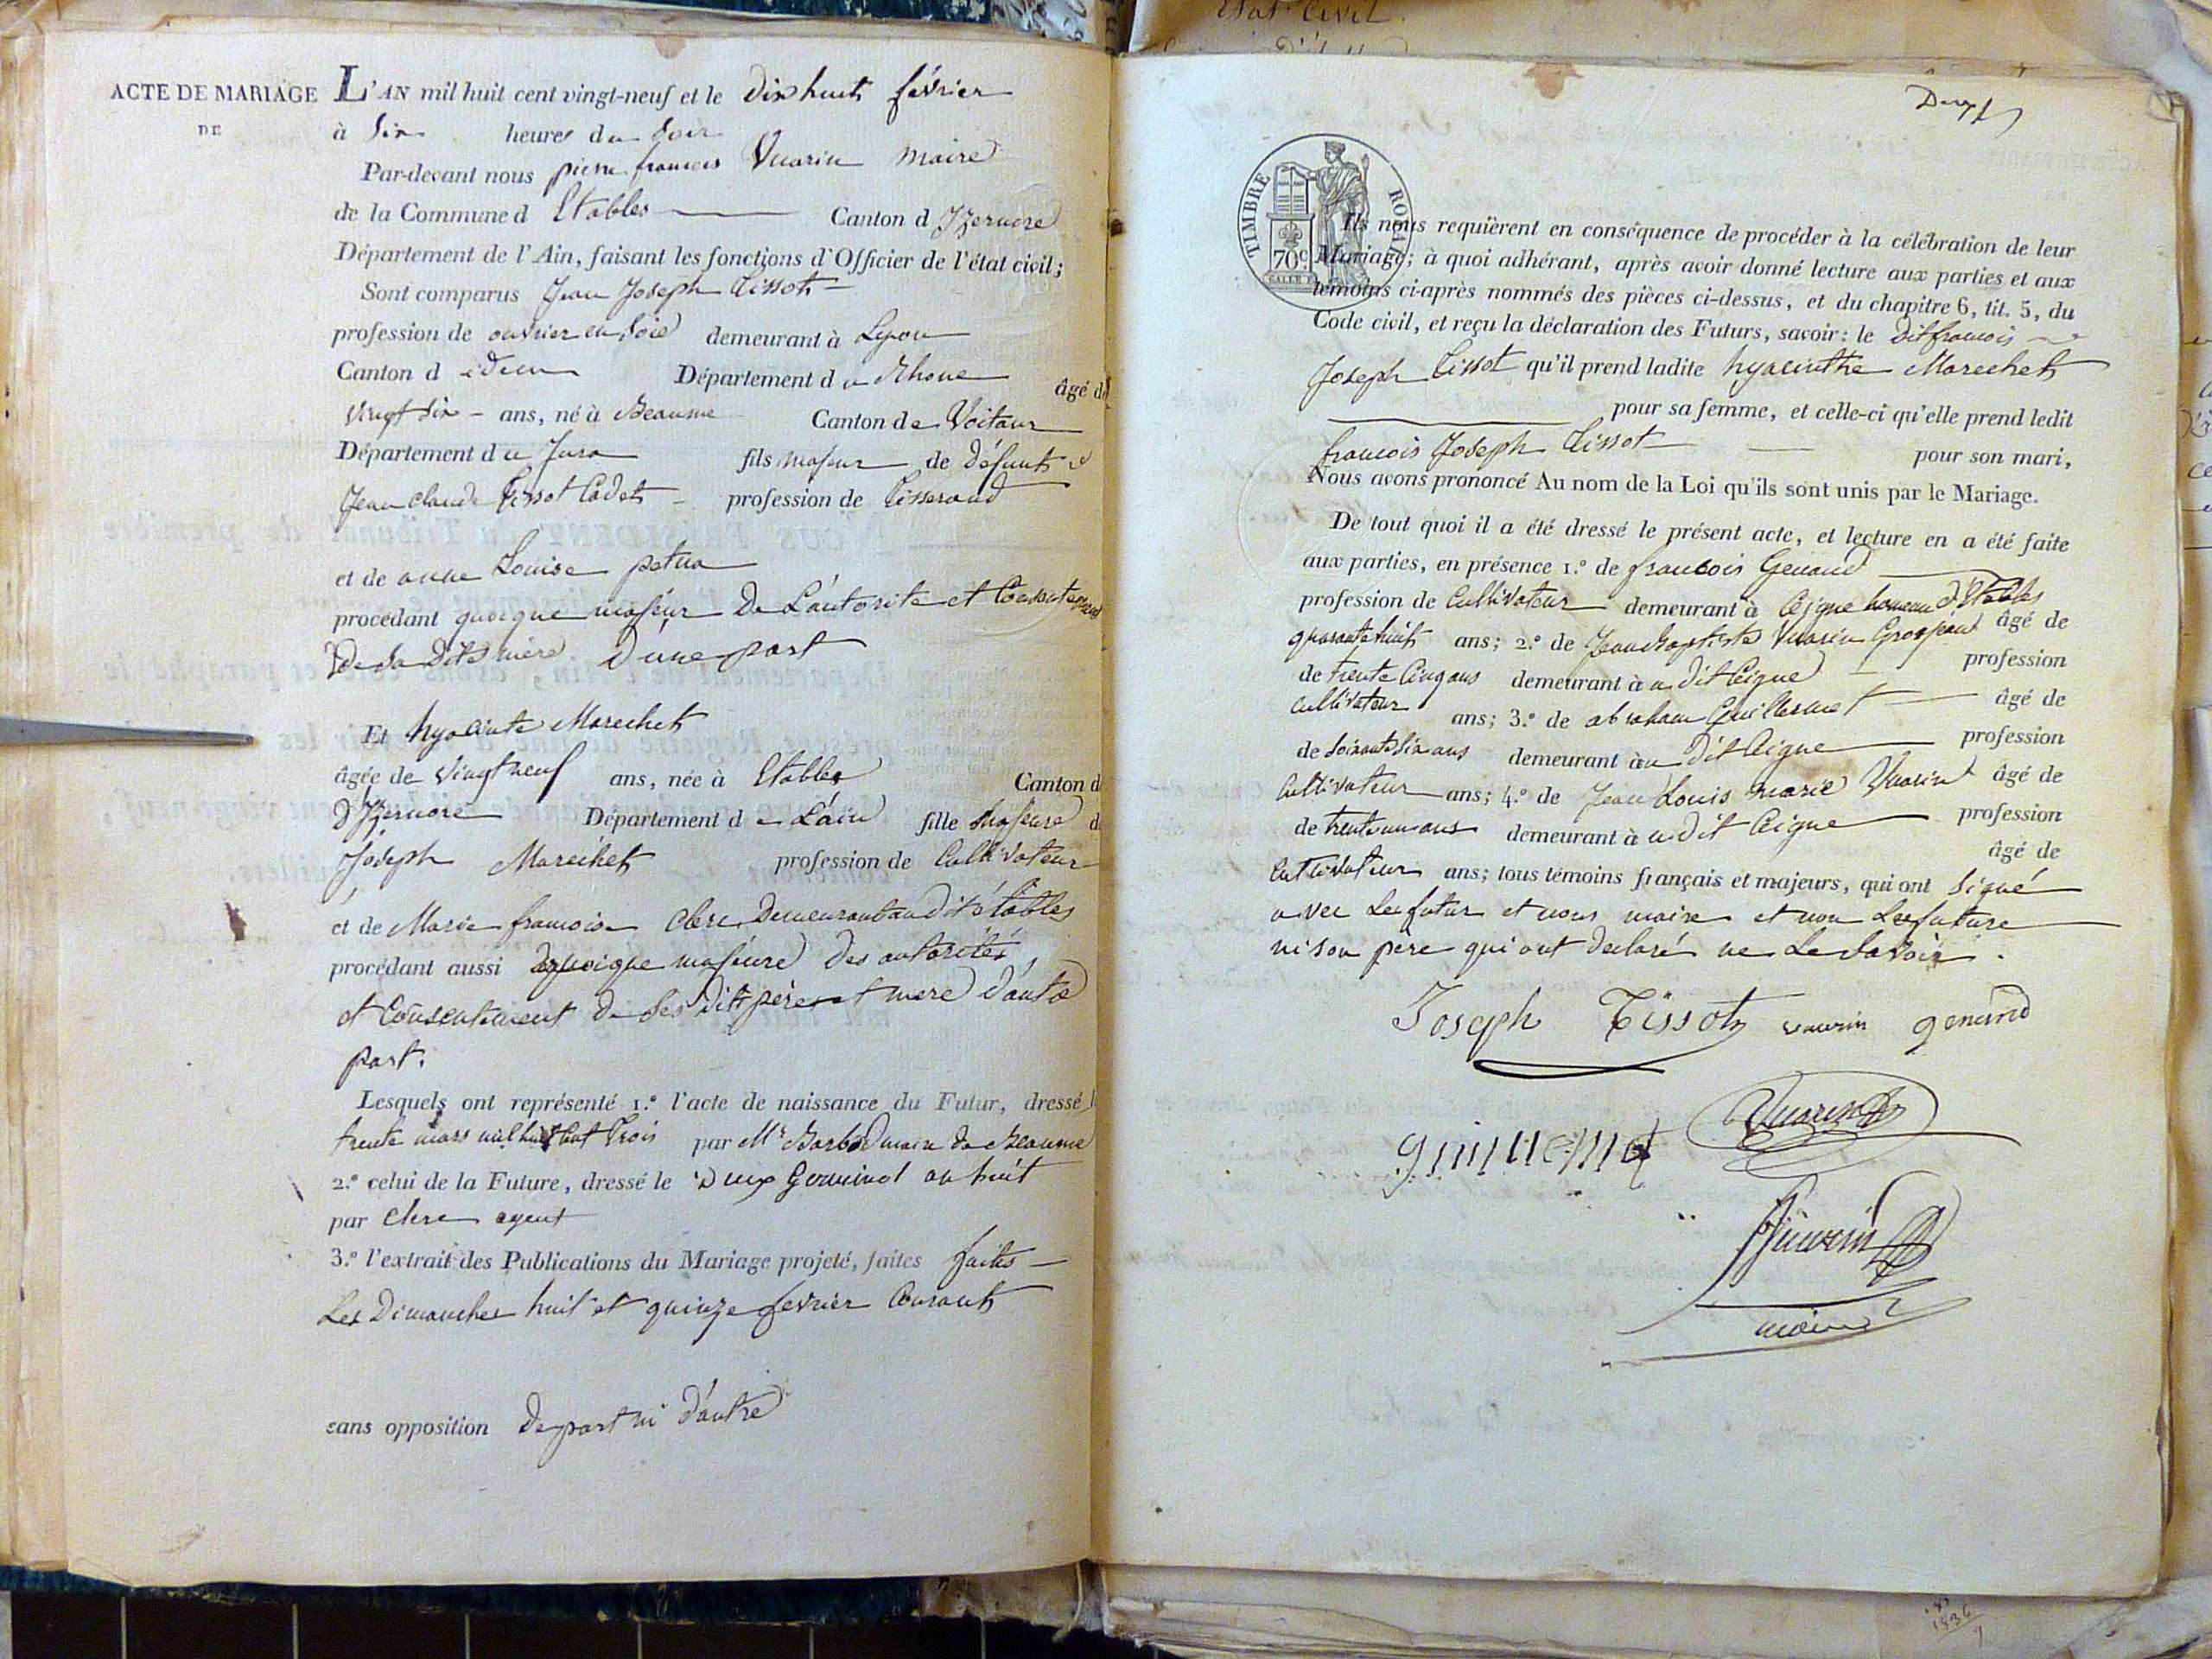 ACTE DE MARIAGE
DE
L'AN mil huit cent vingt-neuf et le dix huit février
à six heures du soir
Par-devant nous pierre francois Vuarin maire
de la Commune d Etables Canton d Izernore
Département de l'Ain, faisant les fonctions d'Officier de l'état civil;
Sont comparus Jean Joseph Tissot
profession de ouvrier en soie demeurant à Lyon
Canton d idem Département d u Rhone âgé de
vingt six ans, né à Beaume Canton de Voiteur
Département d u Jura fils majeur de défunt
Jean claude Tissot Cadet profession de Tisserand
et de anne Louise petua
procédant quoique majeur De L'autorité et Consentement
De sa Dite mère D'une part
Et hyacinte Marechet
âgée de vingt neuf ans, née à Etables Canton d
D'Izernore Département d e L'ain fille majeure d
Joseph Marechet profession de Cultivateur
et de Marie francoise Clerc Demeurant au dit étables
procédant aussi quoique majeure Des autorités
et Consentement De ses Dits père et mere D'autre
part.
Lesquels ont représenté 1.º l'acte de naissance du Futur, dressé le
trente mars mil huit Cent Trois par Mr Barbod maire de Beaume
2.º celui de la Future, dressé le Deux Germinal an huit
par Clerc agent
3.º l'extrait des Publications du Mariage projeté, faites faites
Les Dimanches huit et quinze fevrier Courant
sans opposition De part ni D'autre
TIMBRE ROYAL
70 c
Ils nous requièrent en conséquence de procéder à la célébration de leur
Mariage; à quoi adhérant, après avoir donné lecture aux parties et aux
témoins ci-après nommés des pièces ci-dessus, et du chapitre 6, tit. 5, du
Code civil, et reçu la déclaration des Futurs, savoir: le dit francois
Joseph Tissot qu'il prend ladite hyacinthe Marechet
pour sa femme, et celle-ci qu'elle prend ledit
francois Joseph Tissot pour son mari,
Nous avons prononcé Au nom de la Loi qu'ils sont unis par le Mariage.
De tout quoi il a été dressé le présent acte, et lecture en a été faite
aux parties, en présence 1.º de francois Genand
profession de Cultivateur demeurant à Ceigne hameau d'Etables âgé de
quarante huit ans; 2.º de Jean Baptiste Vuarin Grosjean profession
de trente Cinq ans demeurant à u dit Ceigne âgé de
Cultivateur ans; 3.º de abraham Guillermet profession
de soixante six ans demeurant à u Dit Ceigne âgé de
Cultivateur ans; 4.º de Jean Louis marie Vuarin profession
de trente un ans demeurant à u dit Ceigne âgé de
Cultivateur ans; tous témoins français et majeurs, qui ont signé
avec Le futur et nous maire et non La future
ni son père qui ont declaré ne Le savoir.
Joseph Tissot vuarin genand
Vuarin
guillermet
Vuarin
maire
1836